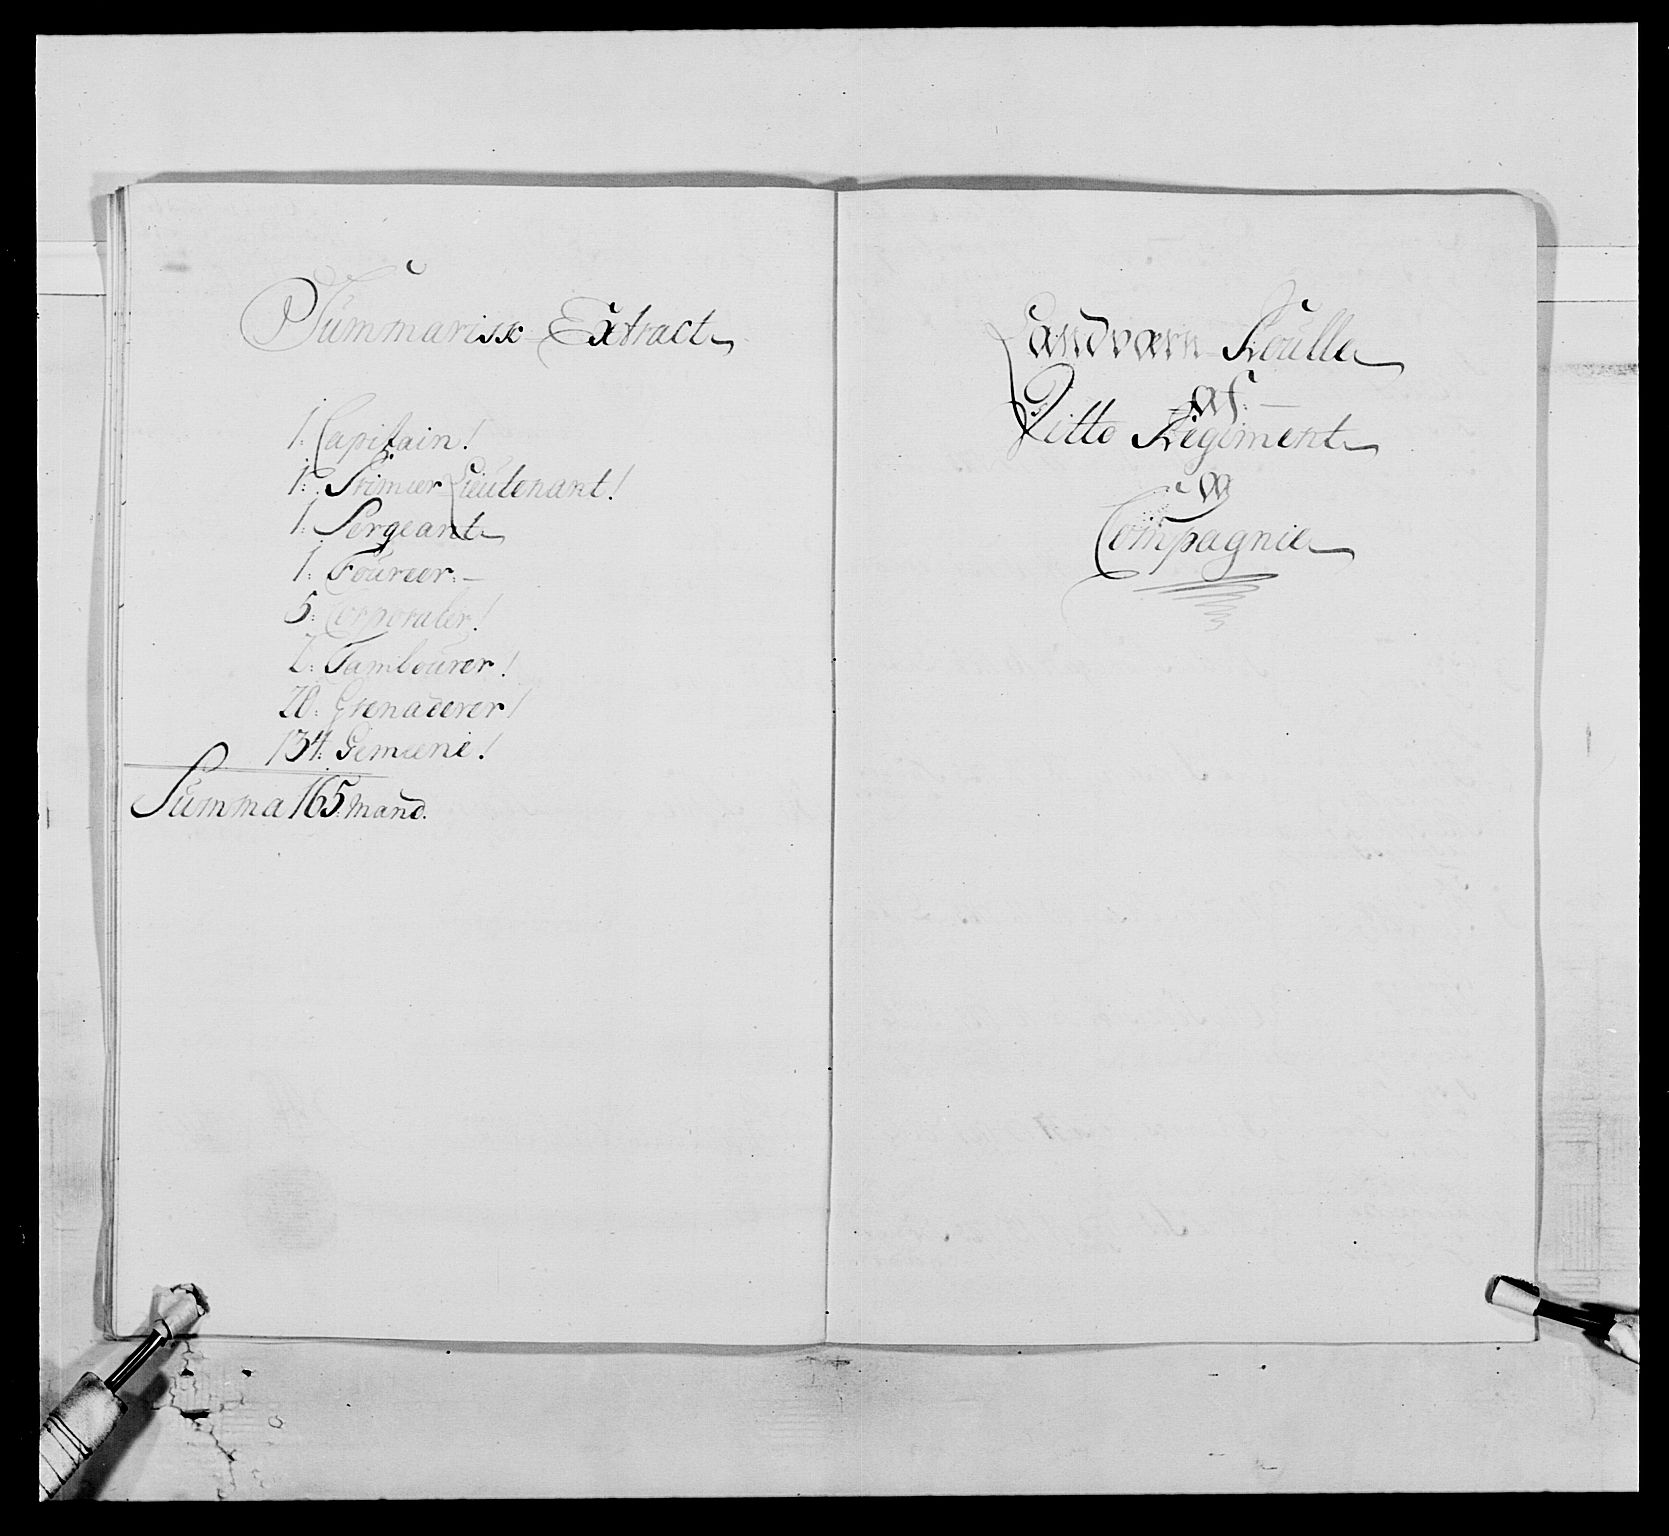 Summarisk Extract
1: Capitain!
1: Primier Lieutenant!
1: Sergeant
1: Foureer:
5: Corporaler!
2: Tambourer!
20: Grenaderer!
134: Gemeene!
Summa 165: Mand.
Landværn Roulle
af
Ditto Regiment
Compagnie